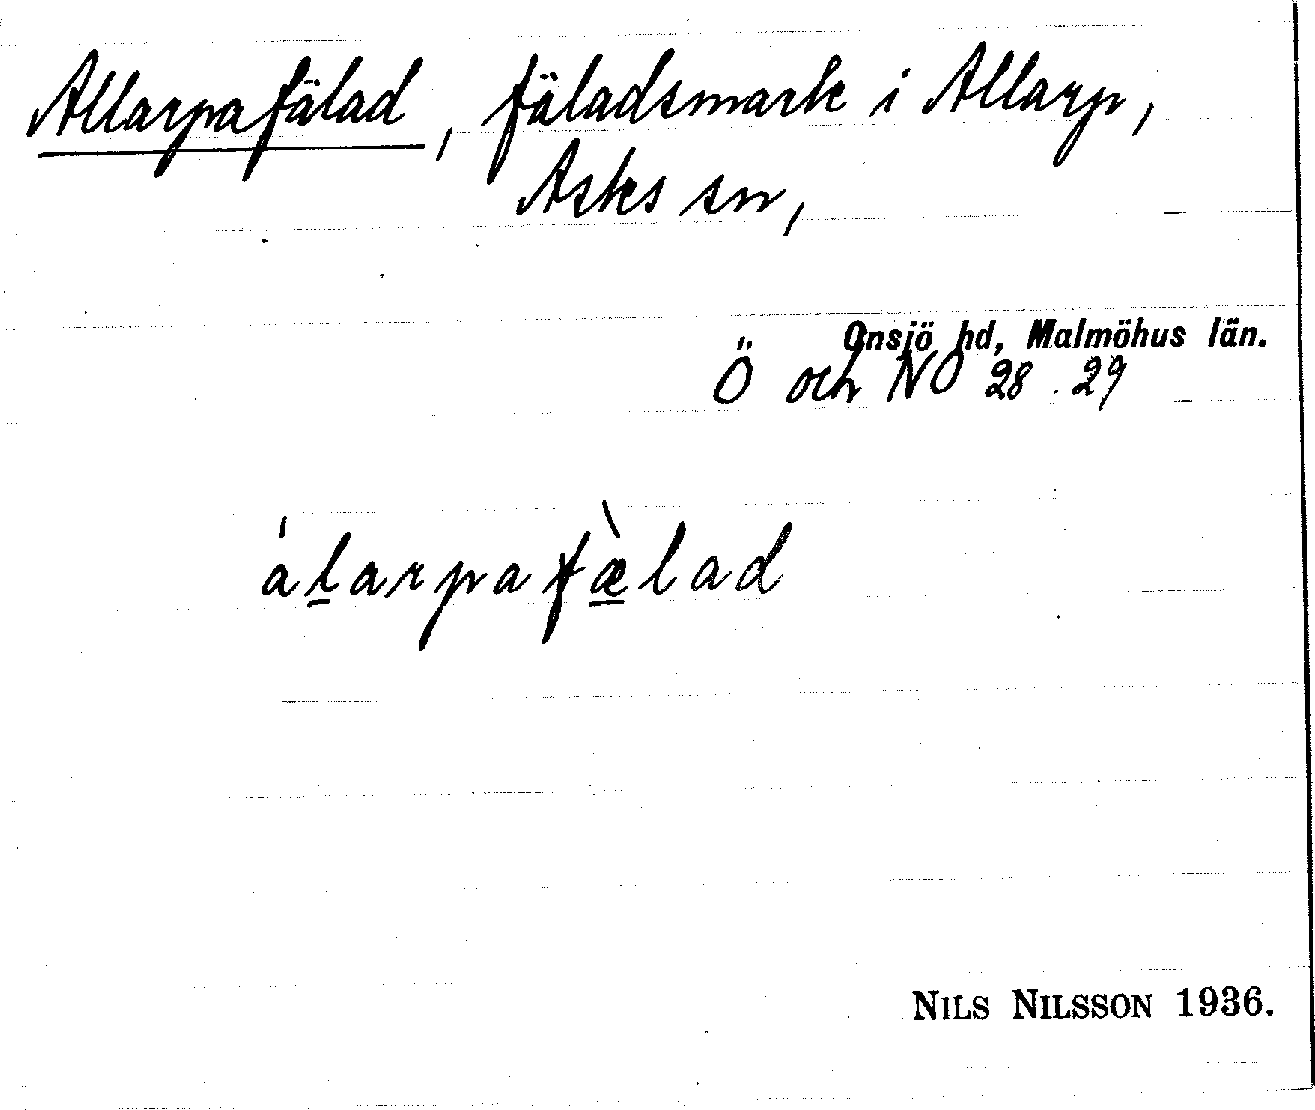 Allarpafälad, fäladsmark i Allarp,
Asks sn,
Onsjö hd, Malmöhus län.
Ö och NO 28. 29
álarpafæ̀lad
NILS NILSSON 1936.